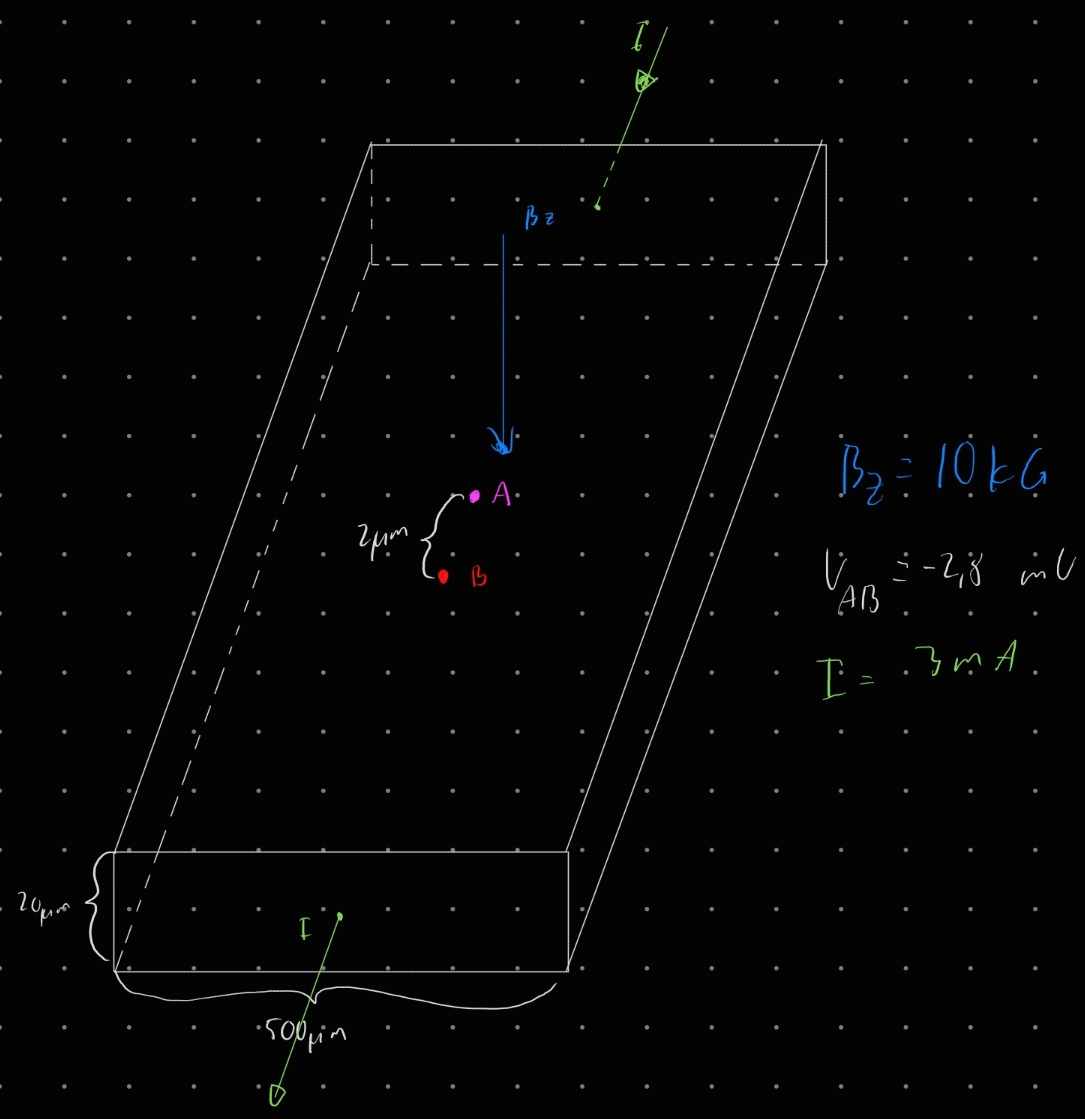 I
Bz
A
2μm
B
Bz = 10 kG
VAB = -2,8 mV
I = 3 mA
20μm
I
500μm